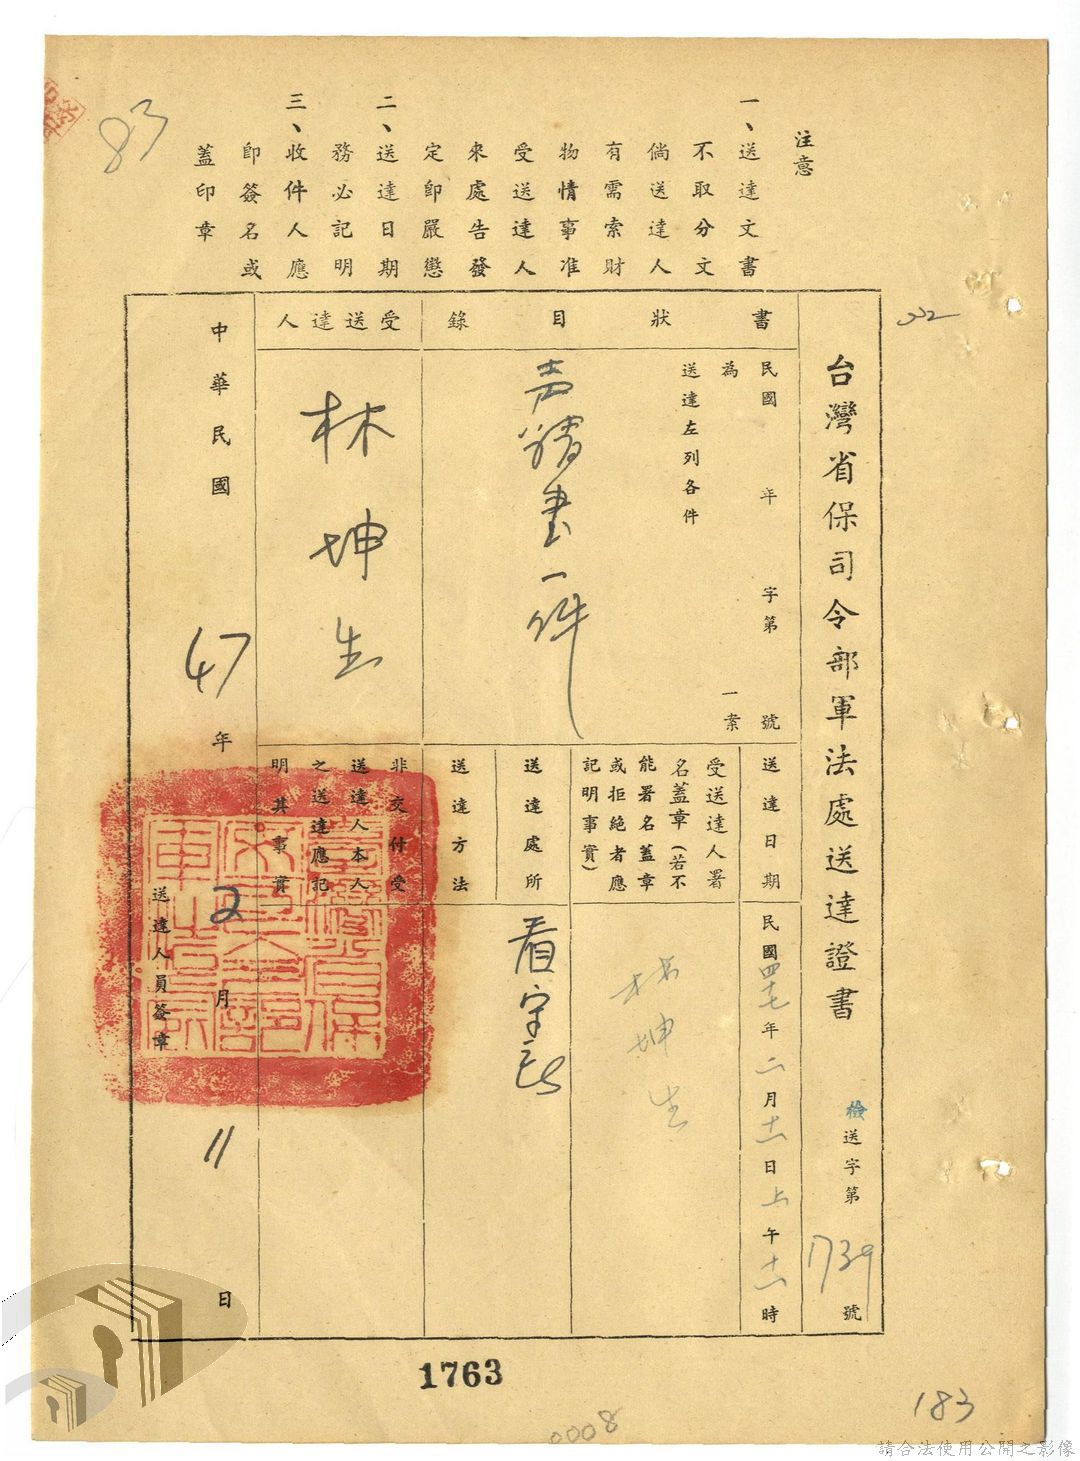 注意
一、送達文書
不取分文
倘送達人
有需索財
物情事准
受送達人
來處告發
定即嚴懲
二、送達日期
務必記明
三、收件人應
即簽名或
蓋印章
83
台灣省保司令部軍法處送達證書
檢送字第1739號
書狀目錄
民國 年 字第 號
為 一案
送達左列各件
声請書一件
受送達人
林坤生
送達日期
民國四十七年二月十一日上午十一時
受送達人署
名蓋章(若不
能署名蓋章
或拒絕者應
記明事實)
林坤生
送達處所
看守所
送達方法
非交付受
送達人本人
之送達應記
明其事實
中華民國47年2月11日
送達人員簽章
1763
0008
183
請合法使用公開之影像